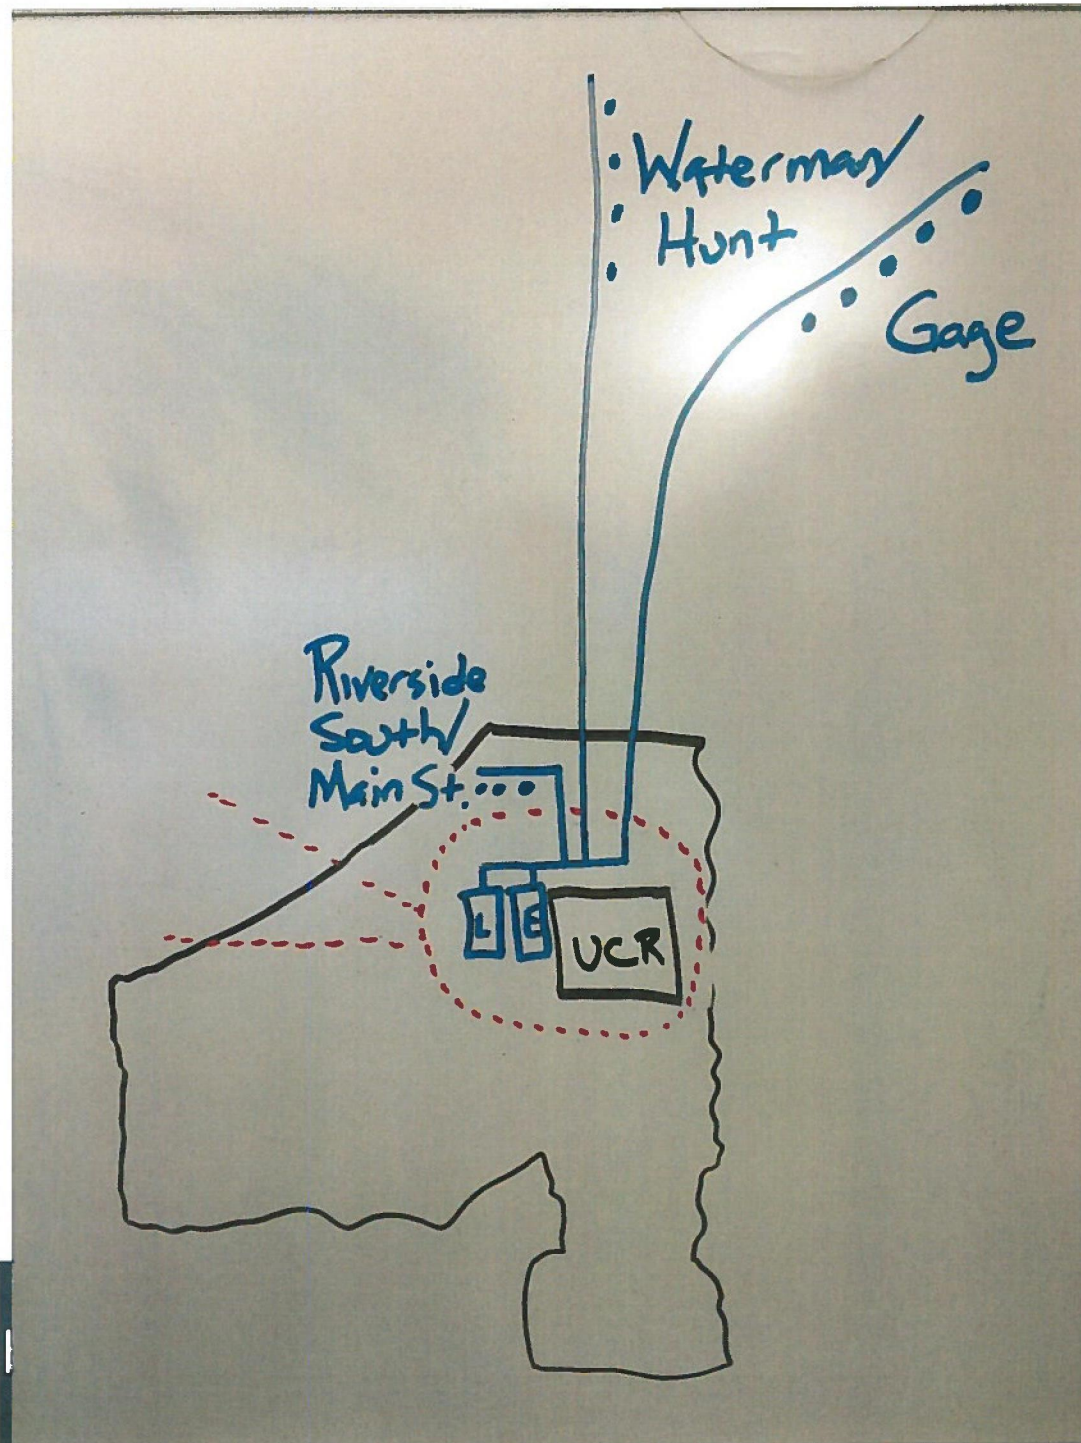 Waterman/
Hunt
Gage
Riverside
South/
Main St.
L
E
UCR